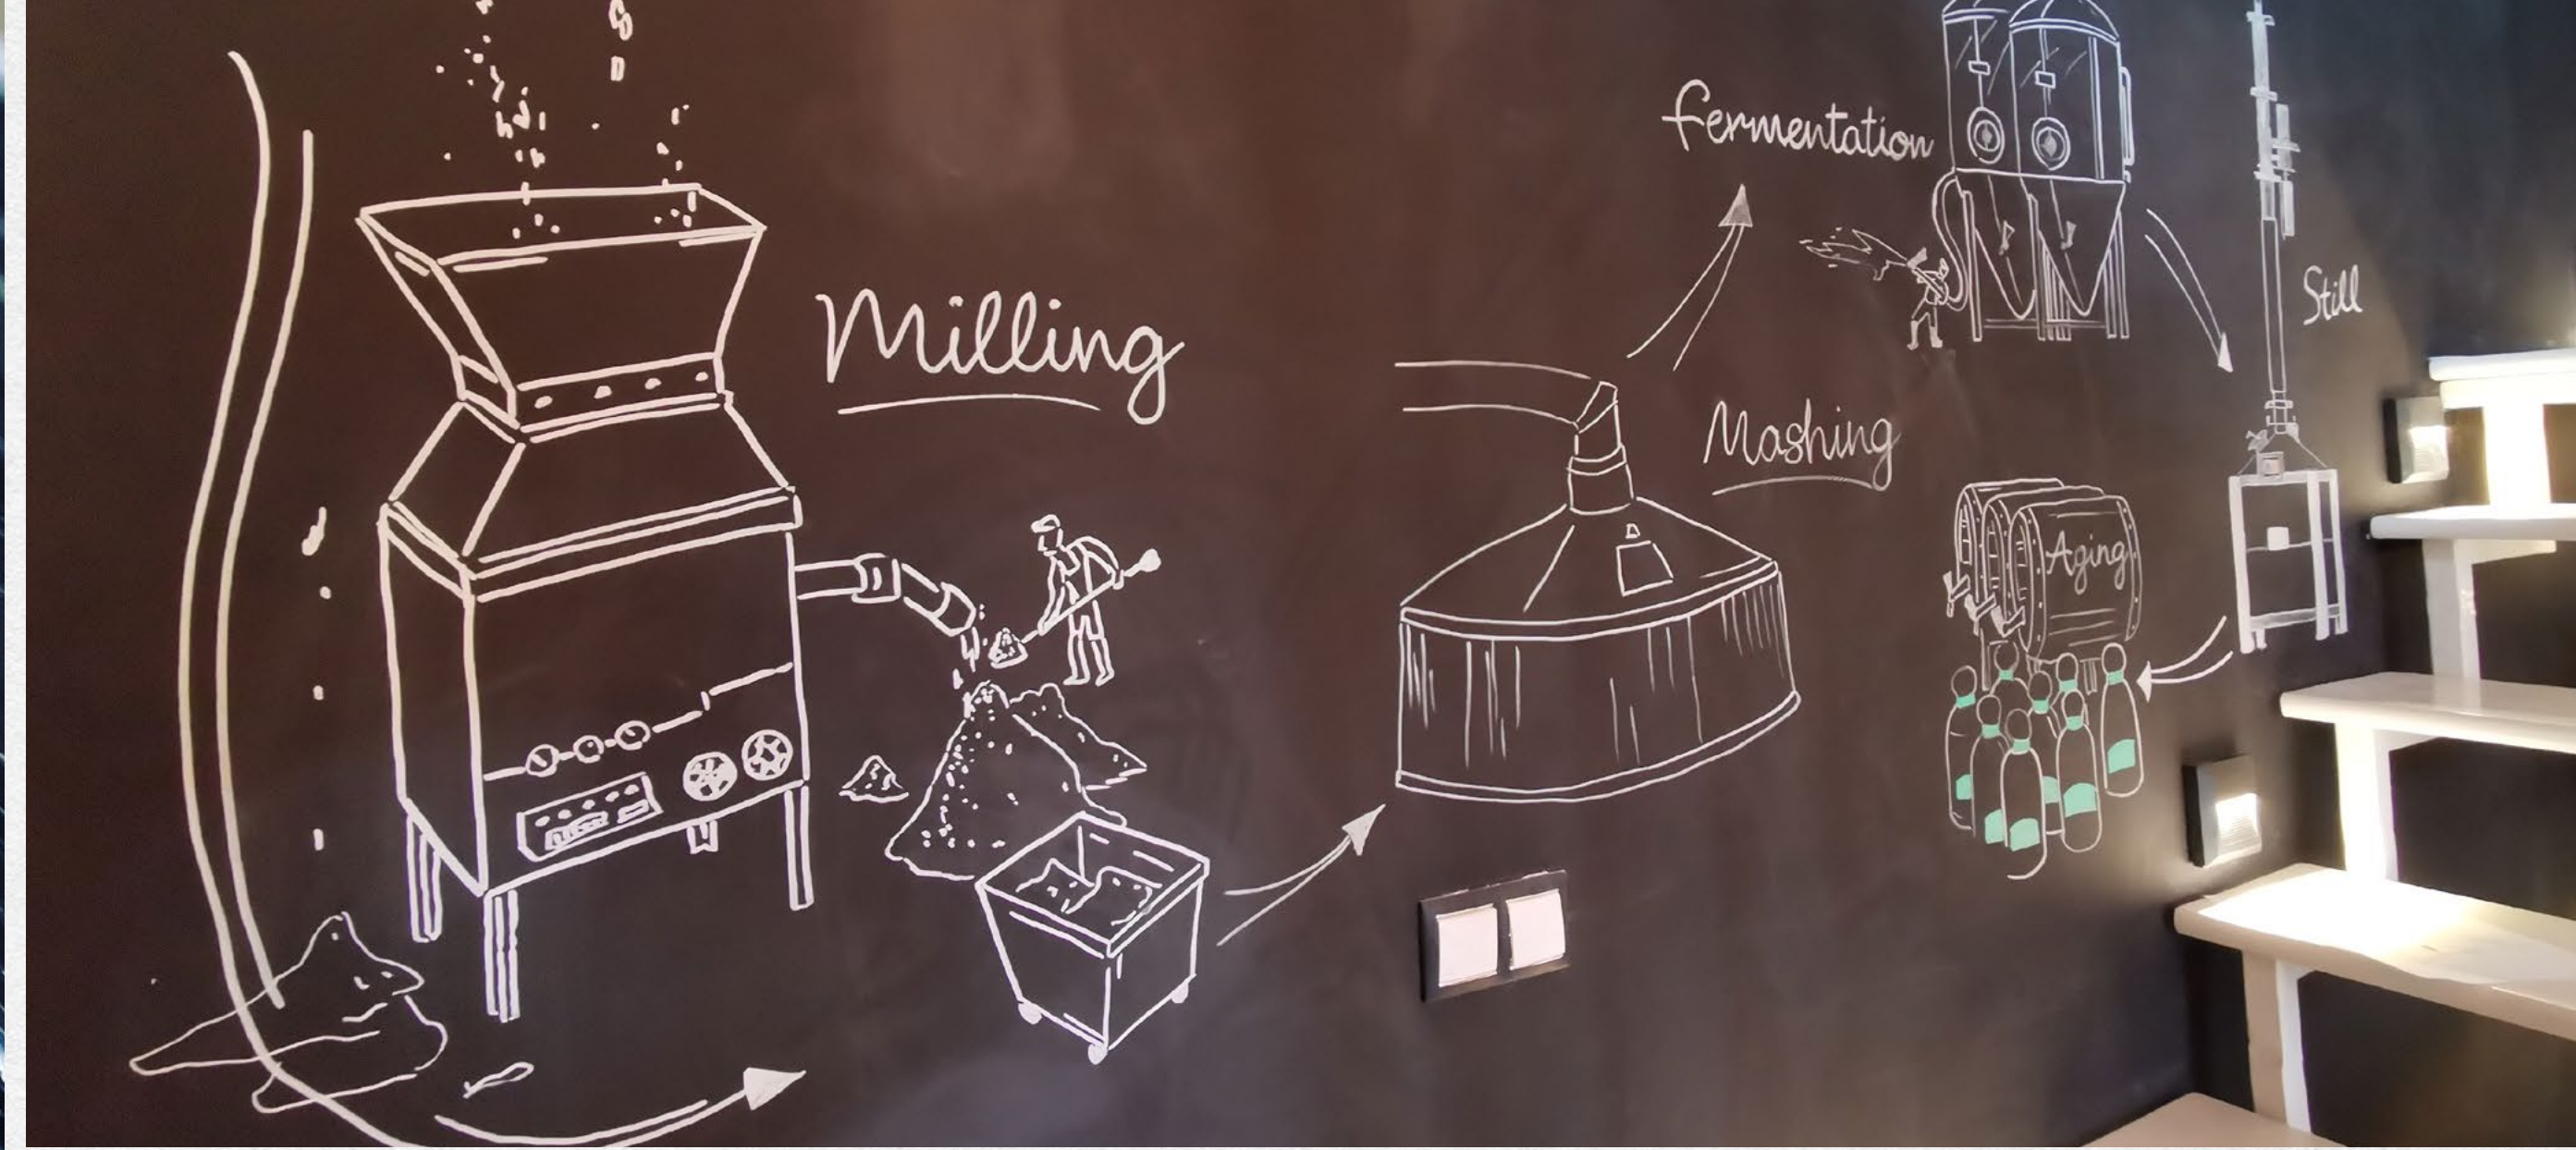 Milling
Mashing
fermentation
Still
Aging